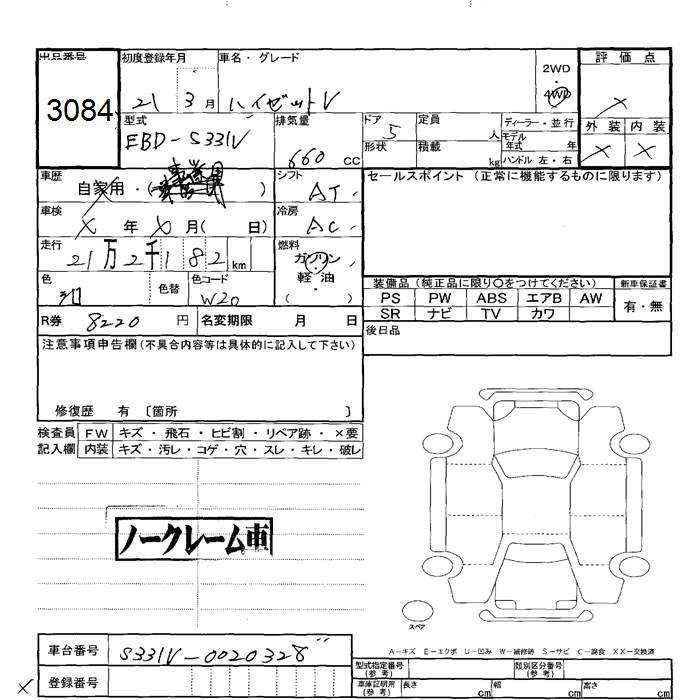 出品番号
3084
初度登録年月
21 3月
車名・グレード
ハイゼットV
2WD
4WD
評価点
×
外装 内装
× ×
型式
EBD-S331V
排気量
660 cc
ドア
5
形状
定員
人
積載
kg
ディーラー・並行
モデル年式 年
ハンドル 左・右
車歴
自家用・( )
シフト
AT
セールスポイント (正常に機能するものに限ります)
車検
× 年 × 月( 日)
冷房
AC
走行
21万2千182 km
燃料
ガソリン
軽・油
( )
色
色替
色コード
W20
装備品 (純正品に限り○をつけてください)
新車保証書
PS PW ABS エアB AW
SR ナビ TV カワ
有・無
R券 8220 円
名変期限 月 日
後日品
注意事項申告欄(不具合内容等は具体的に記入して下さい)
修復歴 有 〔箇所 〕
検査員 FW キズ・飛石・ヒビ割・リペア跡・×要
記入欄 内装 キズ・汚レ・コゲ・穴・スレ・キレ・破レ
ノークレーム車
スペア
A-キズ E-エクボ U-凹み W-補修跡 S-サビ C-腐食 XX-交換済
車台番号 S331V-0020328
登録番号
×
型式指定番号(参考)
類別区分番号(参考)
車庫証明用(参考) 長さ cm 幅 cm 高さ cm